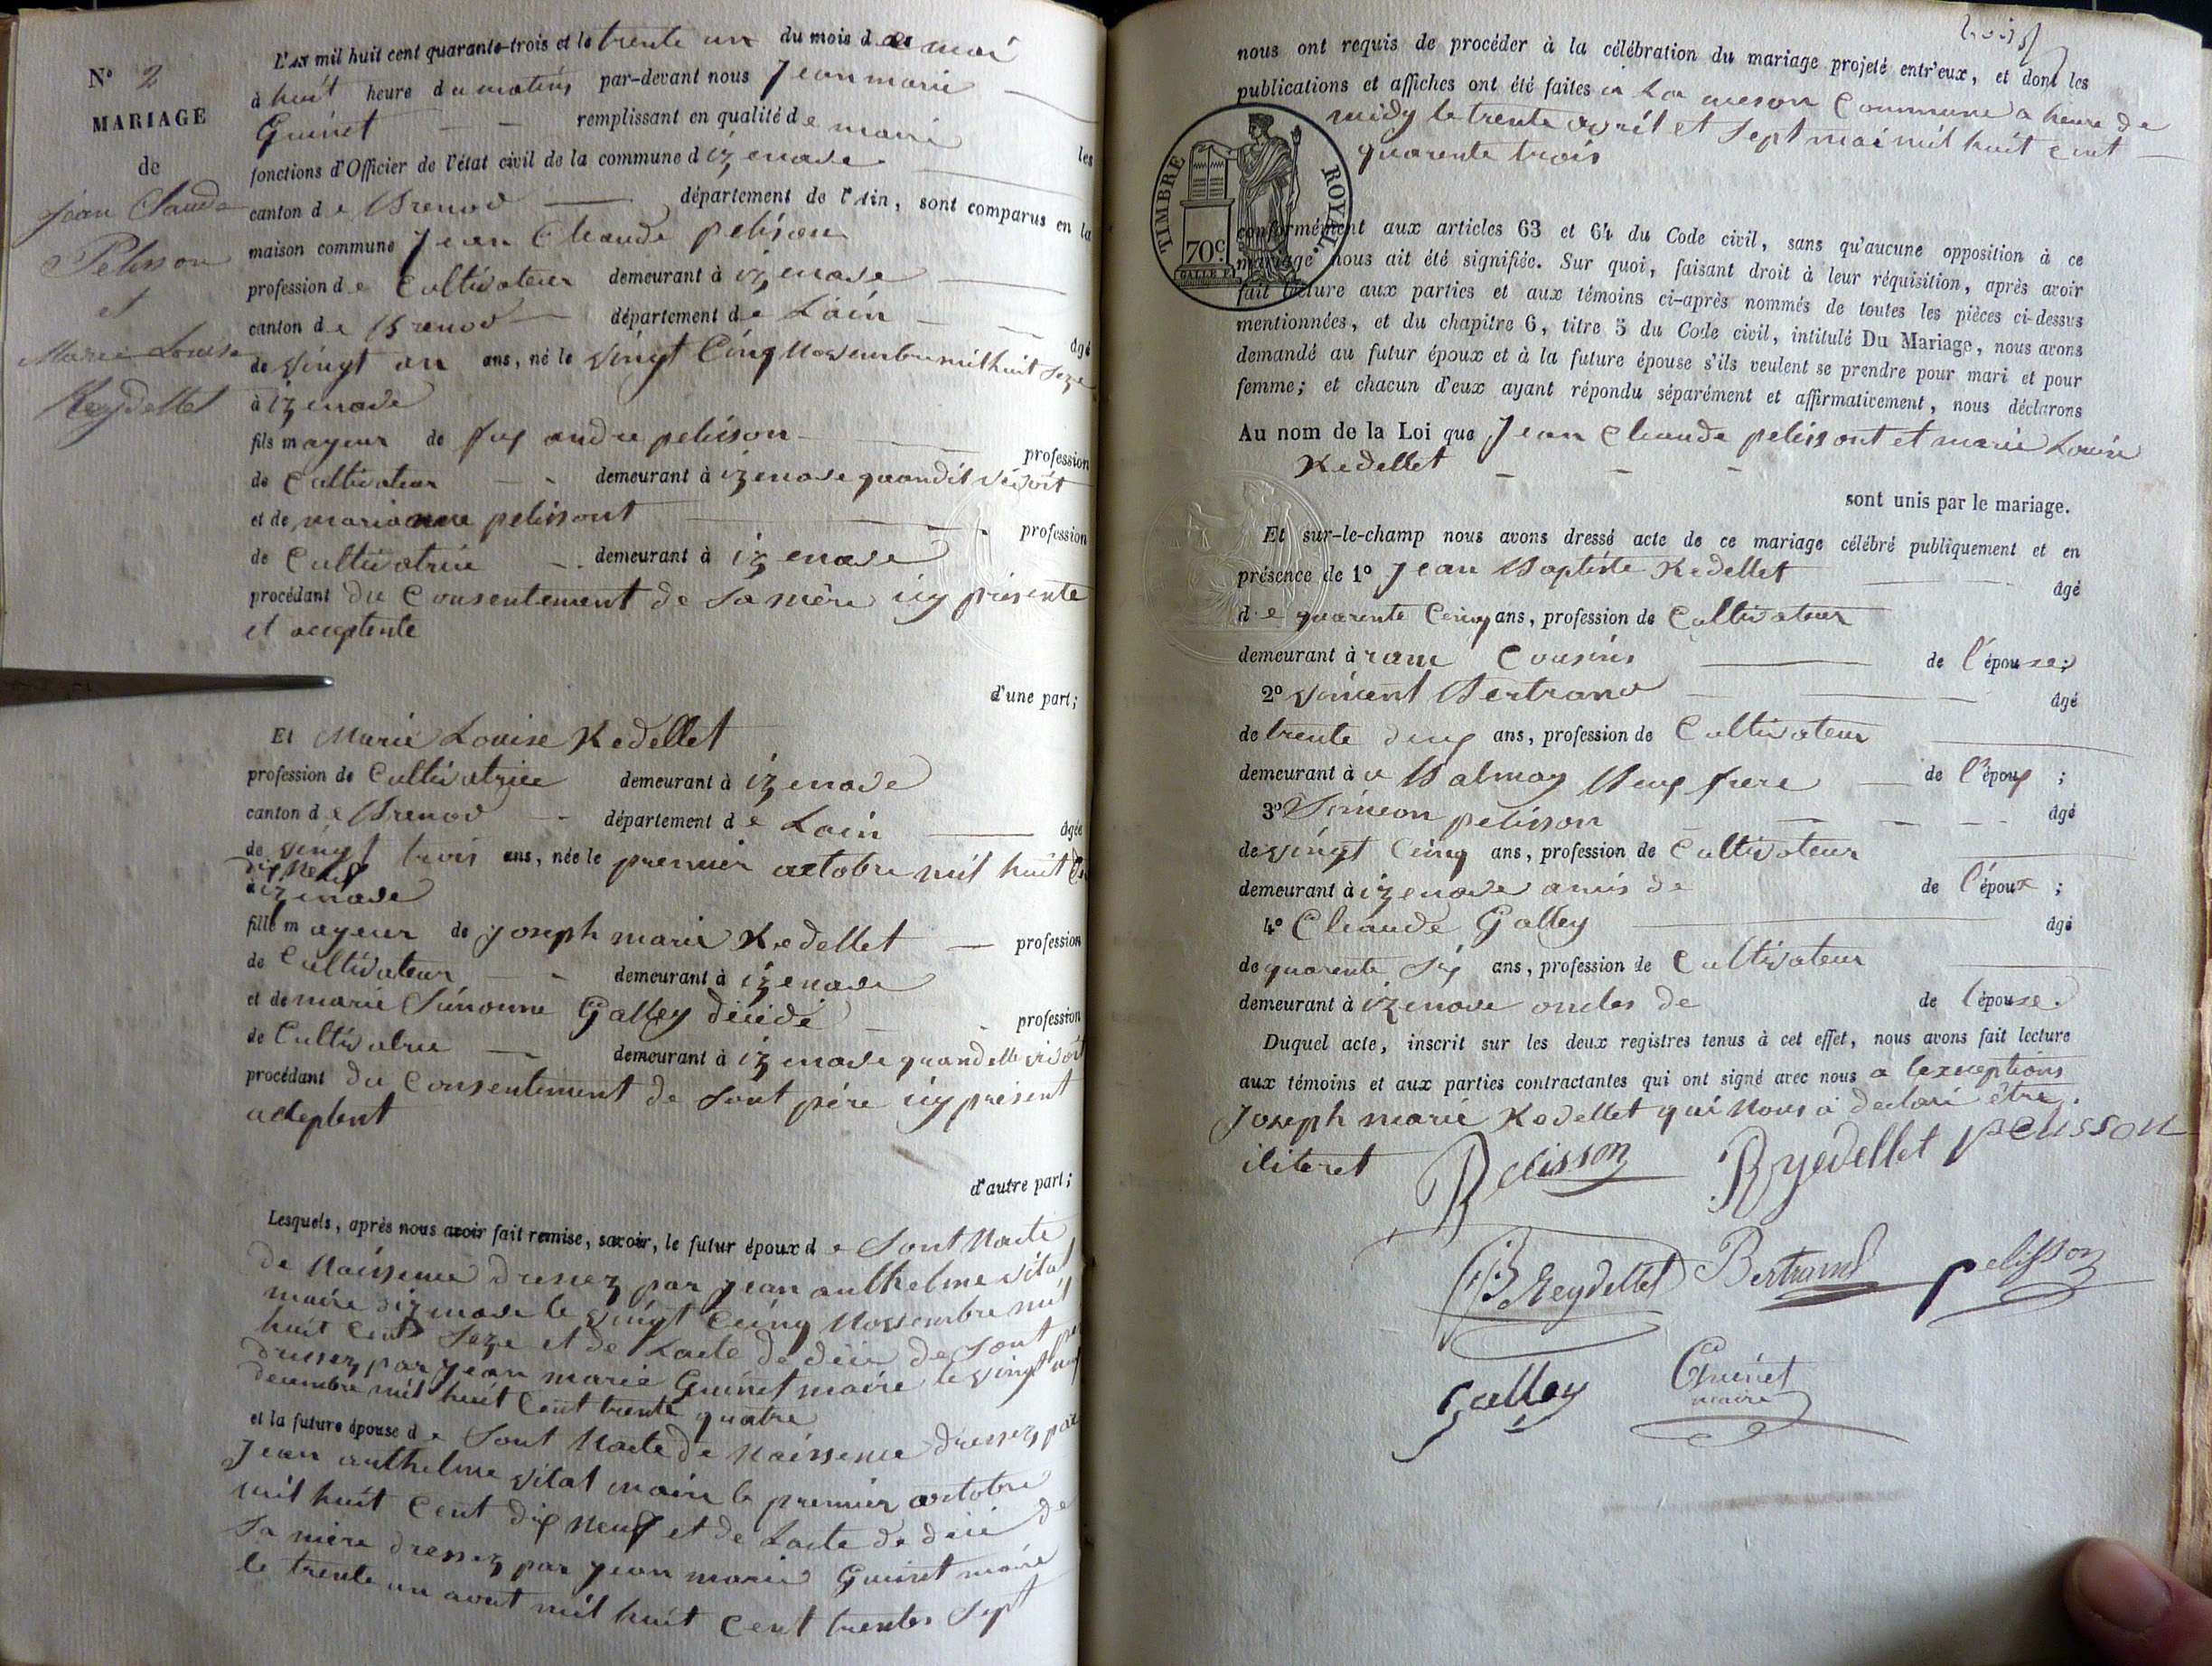 N° 2
MARIAGE
de
Jean Claude
Pelisson
et
Marie Louise
Reydellet
L'AN mil huit cent quarante-trois et le trente un du mois de mai
à huit heure du matin, par-devant nous Jean marie
Guinet remplissant en qualité de maire les
fonctions d'Officier de l'état civil de la commune d izenave
canton de Brenod département de l'Ain, sont comparus en la
maison commune Jean Claude pelison
profession de Cultivateur demeurant à izenave
canton de Brenod département de Lain âgé
de vingt ans, né le vingt Cinq Novembre mil huit seze
à izenave
fils mayeur de feu andre pelisson profession
de Cultivateur demeurant à izenave quandil vivoit
et de marianne pelissont profession
de Cultivatrice demeurant à izenave
procédant du Consentement de sa mère icy présente
et acceptente
d'une part;
Et Marie Louise Redellet
profession de Cultivatrice demeurant à izenave
canton de Brenod département de Lain âgée
de vingt trois ans, née le premier octobre mil huit Cen
dix neuf
à izenave
fille mayeur de Joseph marie Redellet profession
de Cultivateur demeurant à izenave
et de marie Simonne Galley décédé profession
de Cultivatrice demeurant à izenave quand elle vivoit
procédant du Consentement de sont père icy présent
acteptent
d'autre part;
Lesquels, après nous avoir fait remise, savoir, le futur époux de sont Nacte
de Naissence dressez par jean anthelme vital
maire dizenave le vingt Cinq Novembre mil
huit Cent Seze et de Lacte de décé de sont
dressez par jean marie Guinet maire le vingt
decembre mil huit Cent trente quatre
et la future épouse de Sont Nacte de Naissence dressez par
Jean anthelme vital maire le premier octobre
mil huit Cent dix neuf et de Lacte de décé de
Sa mère dressez par jean marie Guinet maire
le trente un aout mil huit Cent trentes Sept
nous ont requis de procéder à la célébration du mariage projeté entr'eux, et dont les
publications et affiches ont été faites à La meson Commune a heure de
midy le trente avril et Sept mai mil huit cent
quarente trois
TIMBRE ROYAL.
70c.
conformément aux articles 63 et 64 du Code civil, sans qu'aucune opposition à ce
mariage nous ait été signifiée. Sur quoi, faisant droit à leur réquisition, après avoir
fait lecture aux parties et aux témoins ci-après nommés de toutes les pièces ci-dessus
mentionnées, et du chapitre 6, titre 5 du Code civil, intitulé Du Mariage, nous avons
demandé au futur époux et à la future épouse s'ils veulent se prendre pour mari et pour
femme; et chacun d'eux ayant répondu séparément et affirmativement, nous déclarons
Au nom de la Loi que Jean Claude pelissont et marie Louise
Redellet
sont unis par le mariage.
Et sur-le-champ nous avons dressé acte de ce mariage célébré publiquement et en
présence de 1° Jean Baptiste Redellet âgé
de quarente Cinq ans, profession de Cultivateur
demeurant à Cousins de l'épouse;
2° vincent Bertrand âgé
de trente deux ans, profession de Cultivateur
demeurant à Balmay Beux frere de l'époux;
3° Simeon pelisson âgé
de vingt Cinq ans, profession de Cultivateur
demeurant à izenave amis de de l'époux;
4° Claude Galley âgé
de quarente Six ans, profession de Cultivateur
demeurant à izenave oncles de de l'épouse.
Duquel acte, inscrit sur les deux registres tenus à cet effet, nous avons fait lecture
aux témoins et aux parties contractantes qui ont signé avec nous a lexceptions
Joseph marie Redellet qui Nous a declaré être
iliteret Pelisson Reydellet pelisson
JB Reydellet Bertrand pelisson
Galley Guinet
maire